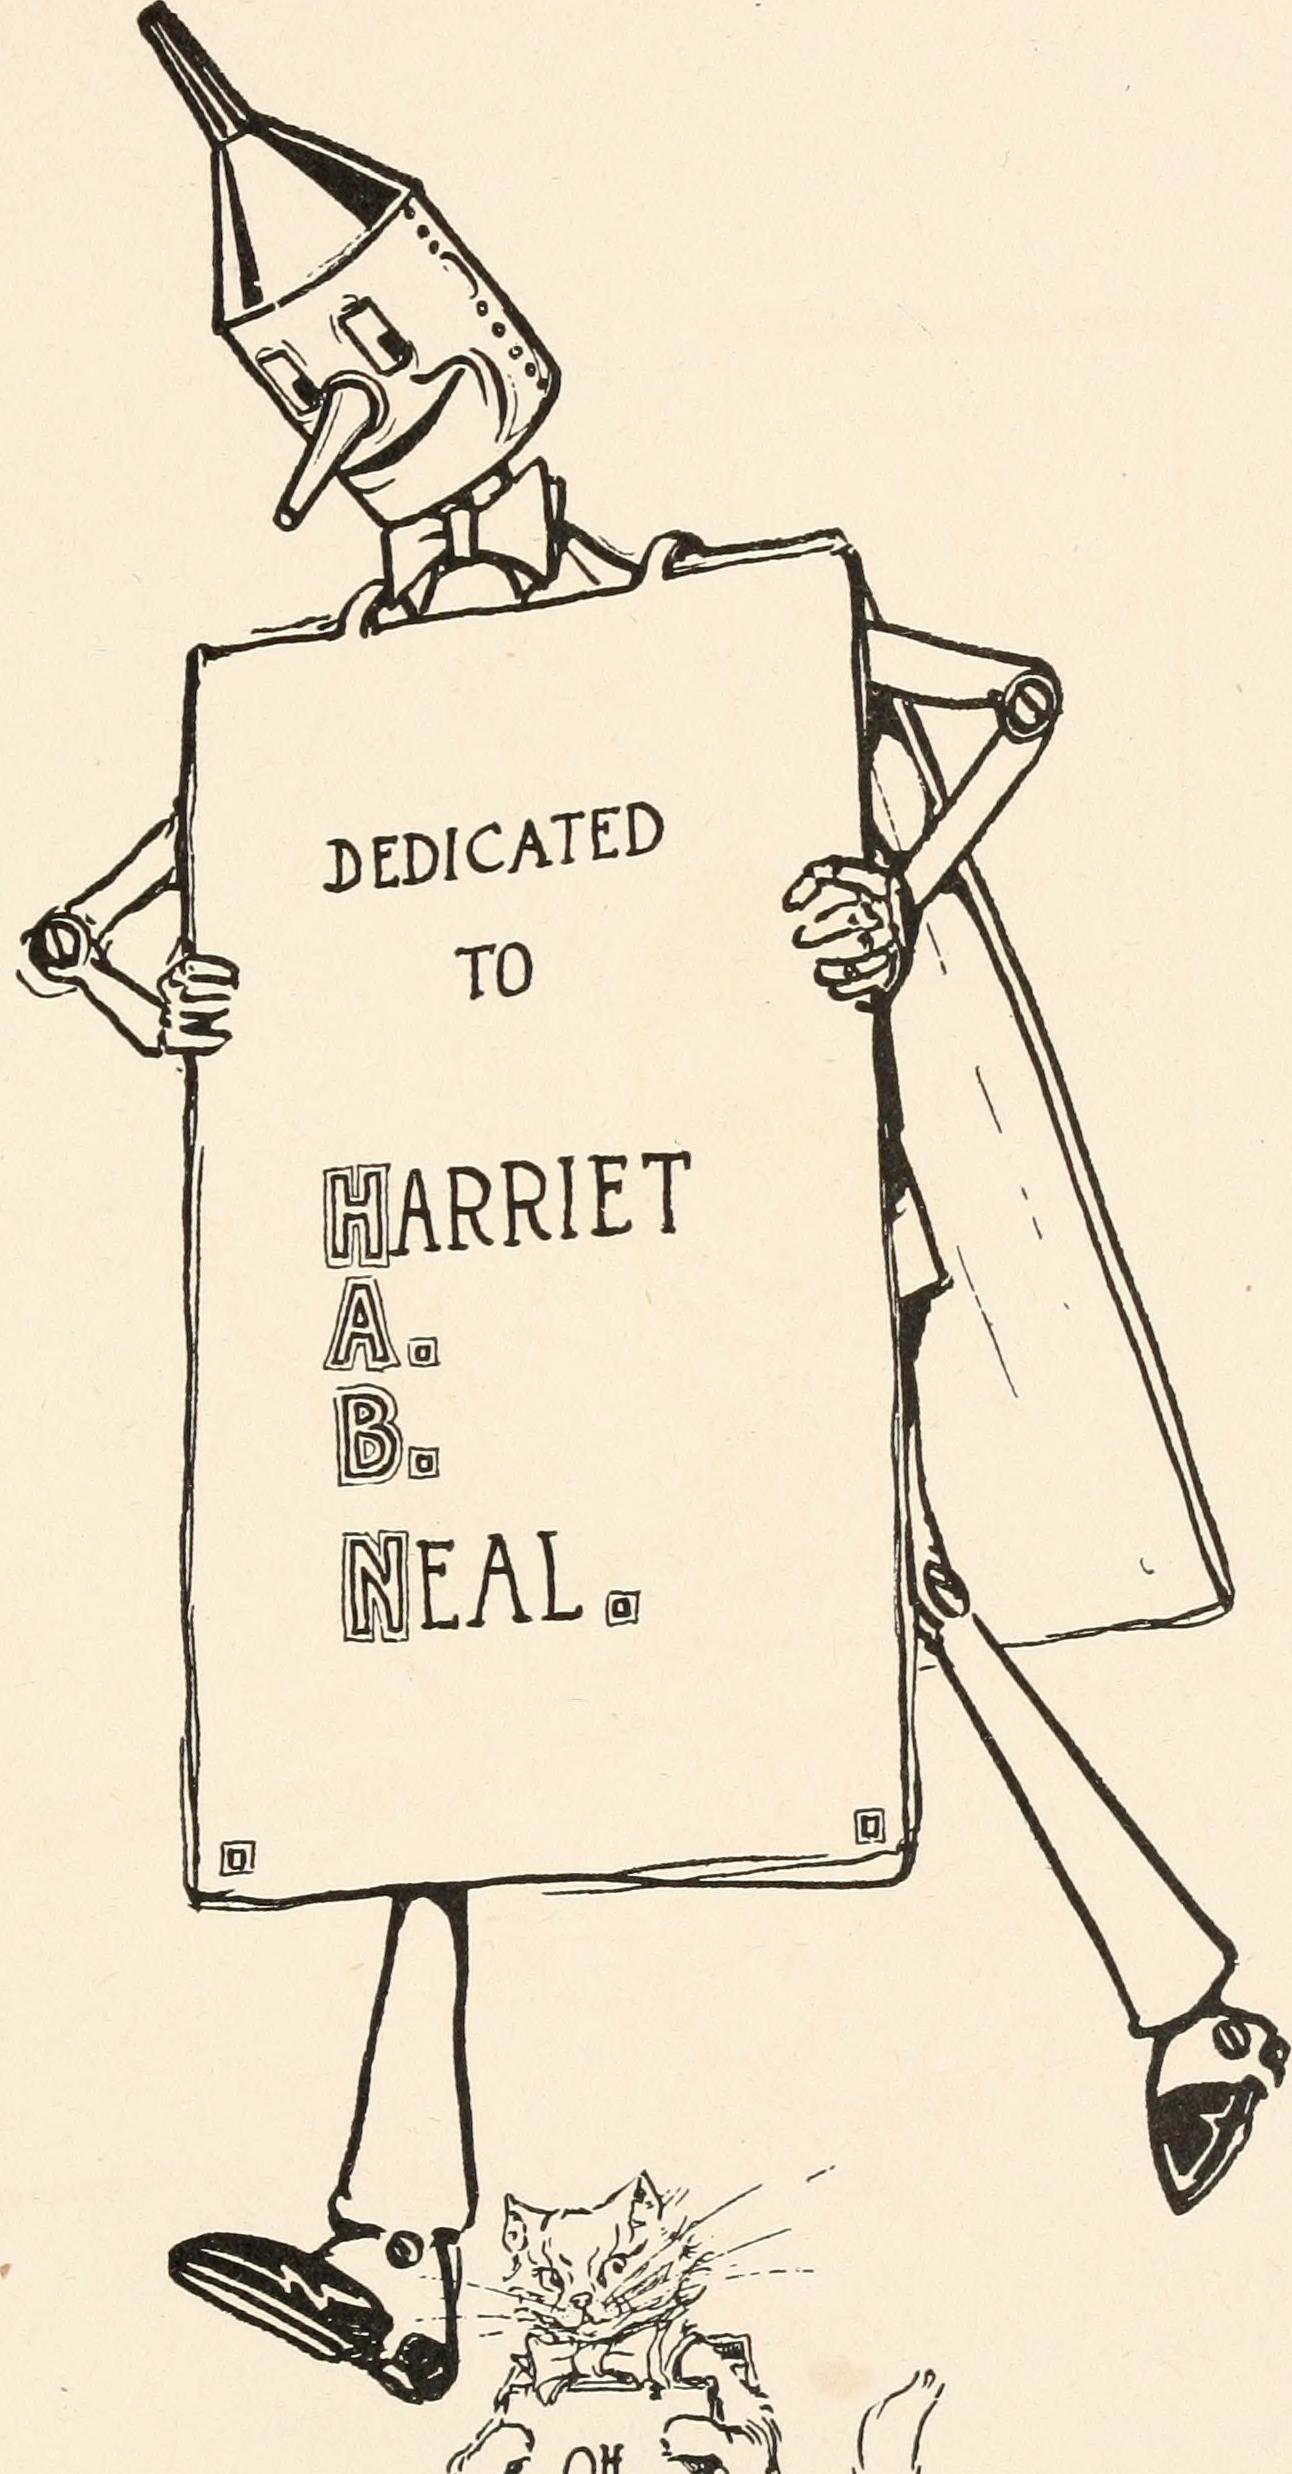 DEDICATED
TO
HARRIET
A.
B.
NEAL.
OH